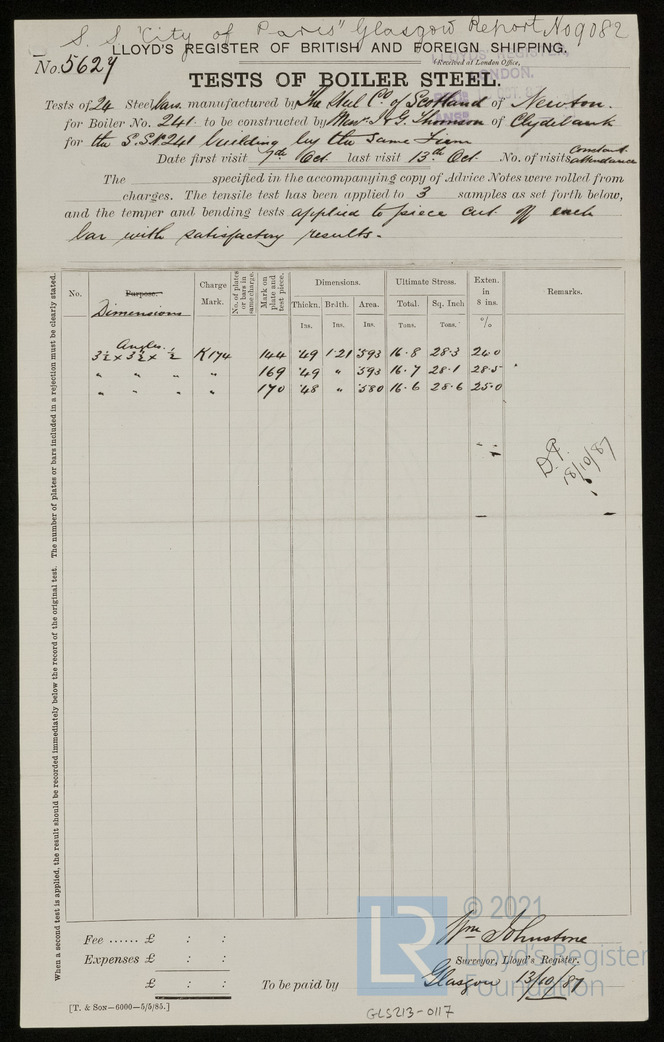 S. S "City of Paris" Glasgow Report No 9082
LLOYD'S REGISTER OF BRITISH AND FOREIGN SHIPPING.
No. 5627
(Received at London Office,
TESTS OF BOILER STEEL.
Tests of 24 Steel bars manufactured by The Steel Co. of Scotland of Newton.
for Boiler No. 241 to be constructed by Messrs J. & G. Thomson of Clydebank
for the S.S. No. 241 building by the same Firm
Date first visit 7th Oct last visit 13th Oct. No. of visits Constant attendance
The specified in the accompanying copy of Advice Notes were rolled from
charges. The tensile test has been applied to 3 samples as set forth below,
and the temper and bending tests applied to piece cut off each
bar with satisfactory results.
When a second test is applied, the result should be recorded immediately below the record of the original test. The number of plates or bars included in a rejection must be clearly stated.
No. Purpose. Charge Mark. No. of plates or bars in same charge. Mark on plate and test piece. Dimensions. Ultimate Stress. Exten. in 8 ins. Remarks.
Dimensions
Thickn. Brdth. Area. Total. Sq. Inch
Ins. Ins. Ins. Tons. Tons. %
Angles
3½ × 3½ × ½ K174 144 .49 1.21 .593 16.8 28.3 26.0
" " " " 169 .49 " .593 16.7 28.1 28.5
" " " " 170 .48 " .580 16.6 28.6 25.0
18/10/87
© 2021
LR
Lloyd's Register
Foundation
Fee ...... £ : :
Expenses £ : :
£ : :
To be paid by
Wm Johnstone
Surveyor, Lloyd's Register.
Glasgow 13/10/87
[T. & SON—6000—5/5/85.]
GLS213-0117